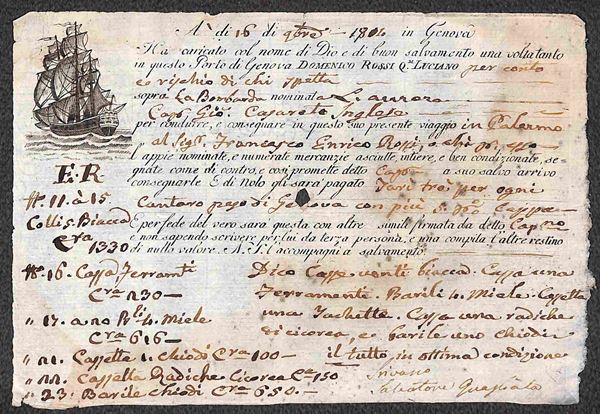 A dì 16 di 9bre 1804 in Genova
Hà caricato col nome di Dio e di buon salvamento una volta tanto
in questo Porto di Genova DOMENICO ROSSI Q. LUCIANO per conto
e rischio di chi spetta
sopra La Bombarda nominata L'aurora
Cap. Gio: Inglese
per condurre, e consegnare in questo suo presente viaggio in Palermo
al Sigr. Francesco Enrico Rossi, o chi
l'appie nominate, e numerate mercanzie asciutte, intiere, e ben condizionate, se-
gnate come di contro, e così promette detto Cap. a suo salvo arrivo
consegnarle E di Nolo gli sarà pagato Tari trei per ogni
E.R
N. 11. à 15
Cantaro peso di Genova con più 5 p% Cappa
Colli 5. Biacca
Cra 1330
E per fede del vero sarà questa con altre simili firmata da detto Capno
e non sapendo scrivere per lui da terza persona, e una compita l'altre restino
di niun valore. A. S. L'accompagni a salvamento.
No. 16. Cassa Ferramti
Cra 230
" 17. a 20 Bli 4. Miele
Cra 616
" 21. Cassetta 1. chiodi Cra 100
" 22. Cassetta Radiche Cicorea Cra 150
" 23. Barile chiodi Cra 650.
Dico Colli biacca. Cassa una
Ferramente. Barili 4. Miele. Cassetta
una Cassa una radiche
di cicorea, e barile uno chiodi
il tutto in ottima condizione
Salvatore